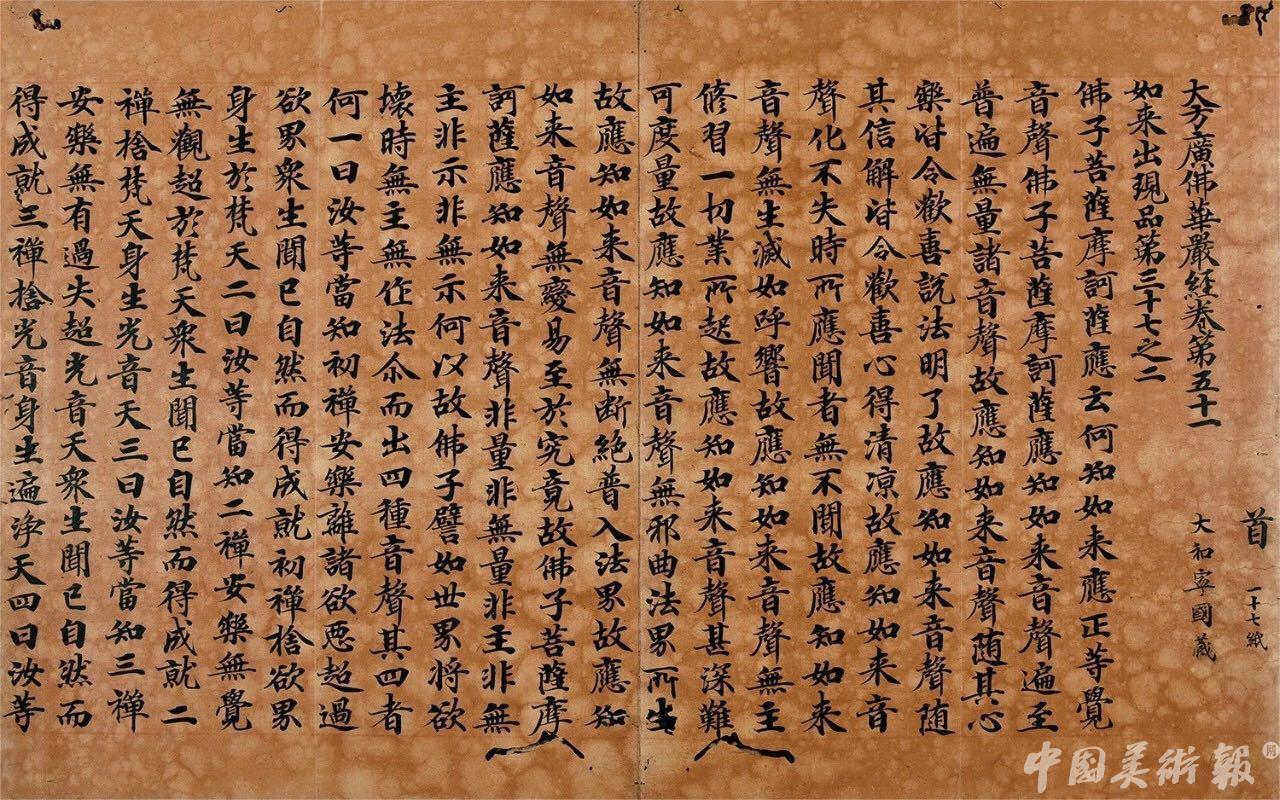 首
一十七紙
大和寧國藏
大方廣佛華嚴經卷第五十一
如来出現品第三十七之二
佛子菩薩摩訶薩應云何知如来應正等覺
音聲佛子菩薩摩訶薩應知如来音聲遍至
普遍無量諸音聲故應知如来音聲随其心
樂皆令歡喜說法明了故應知如来音聲随
其信解皆令歡喜心得清凉故應知如来音
聲化不失時所應聞者無不聞故應知如来
音聲無生滅如呼響故應知如来音聲無主
修習一切業所起故應知如来音聲甚深難
可度量故應知如来音聲無邪曲法界所生
故應知如来音聲無断絶普入法界故應知
如来音聲無變易至於究竟故佛子菩薩摩
訶薩應知如来音聲非量非無量非主非無
主非示非無示何以故佛子譬如世界将欲
壊時無主無作法尒而出四種音聲其四者
何一曰汝等當知初禪安樂離諸欲惡超過
欲界衆生聞已自然而得成就初禪捨欲界
身生於梵天二曰汝等當知二禪安樂無覺
無觀超於梵天衆生聞已自然而得成就二
禪捨梵天身生光音天三曰汝等當知三禪
安樂無有過失超光音天衆生聞已自然而
得成就三禪捨光音身生遍淨天四曰汝等
中國美術報